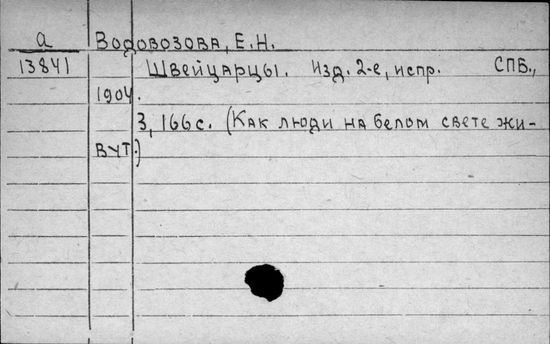 а Водовозова, Е.Н.
13841 Швейцарцы. Изд. 2-е, испр. СПБ.,
1904.
3, 166 с. (Как люди на белом свете жи-
вут.)